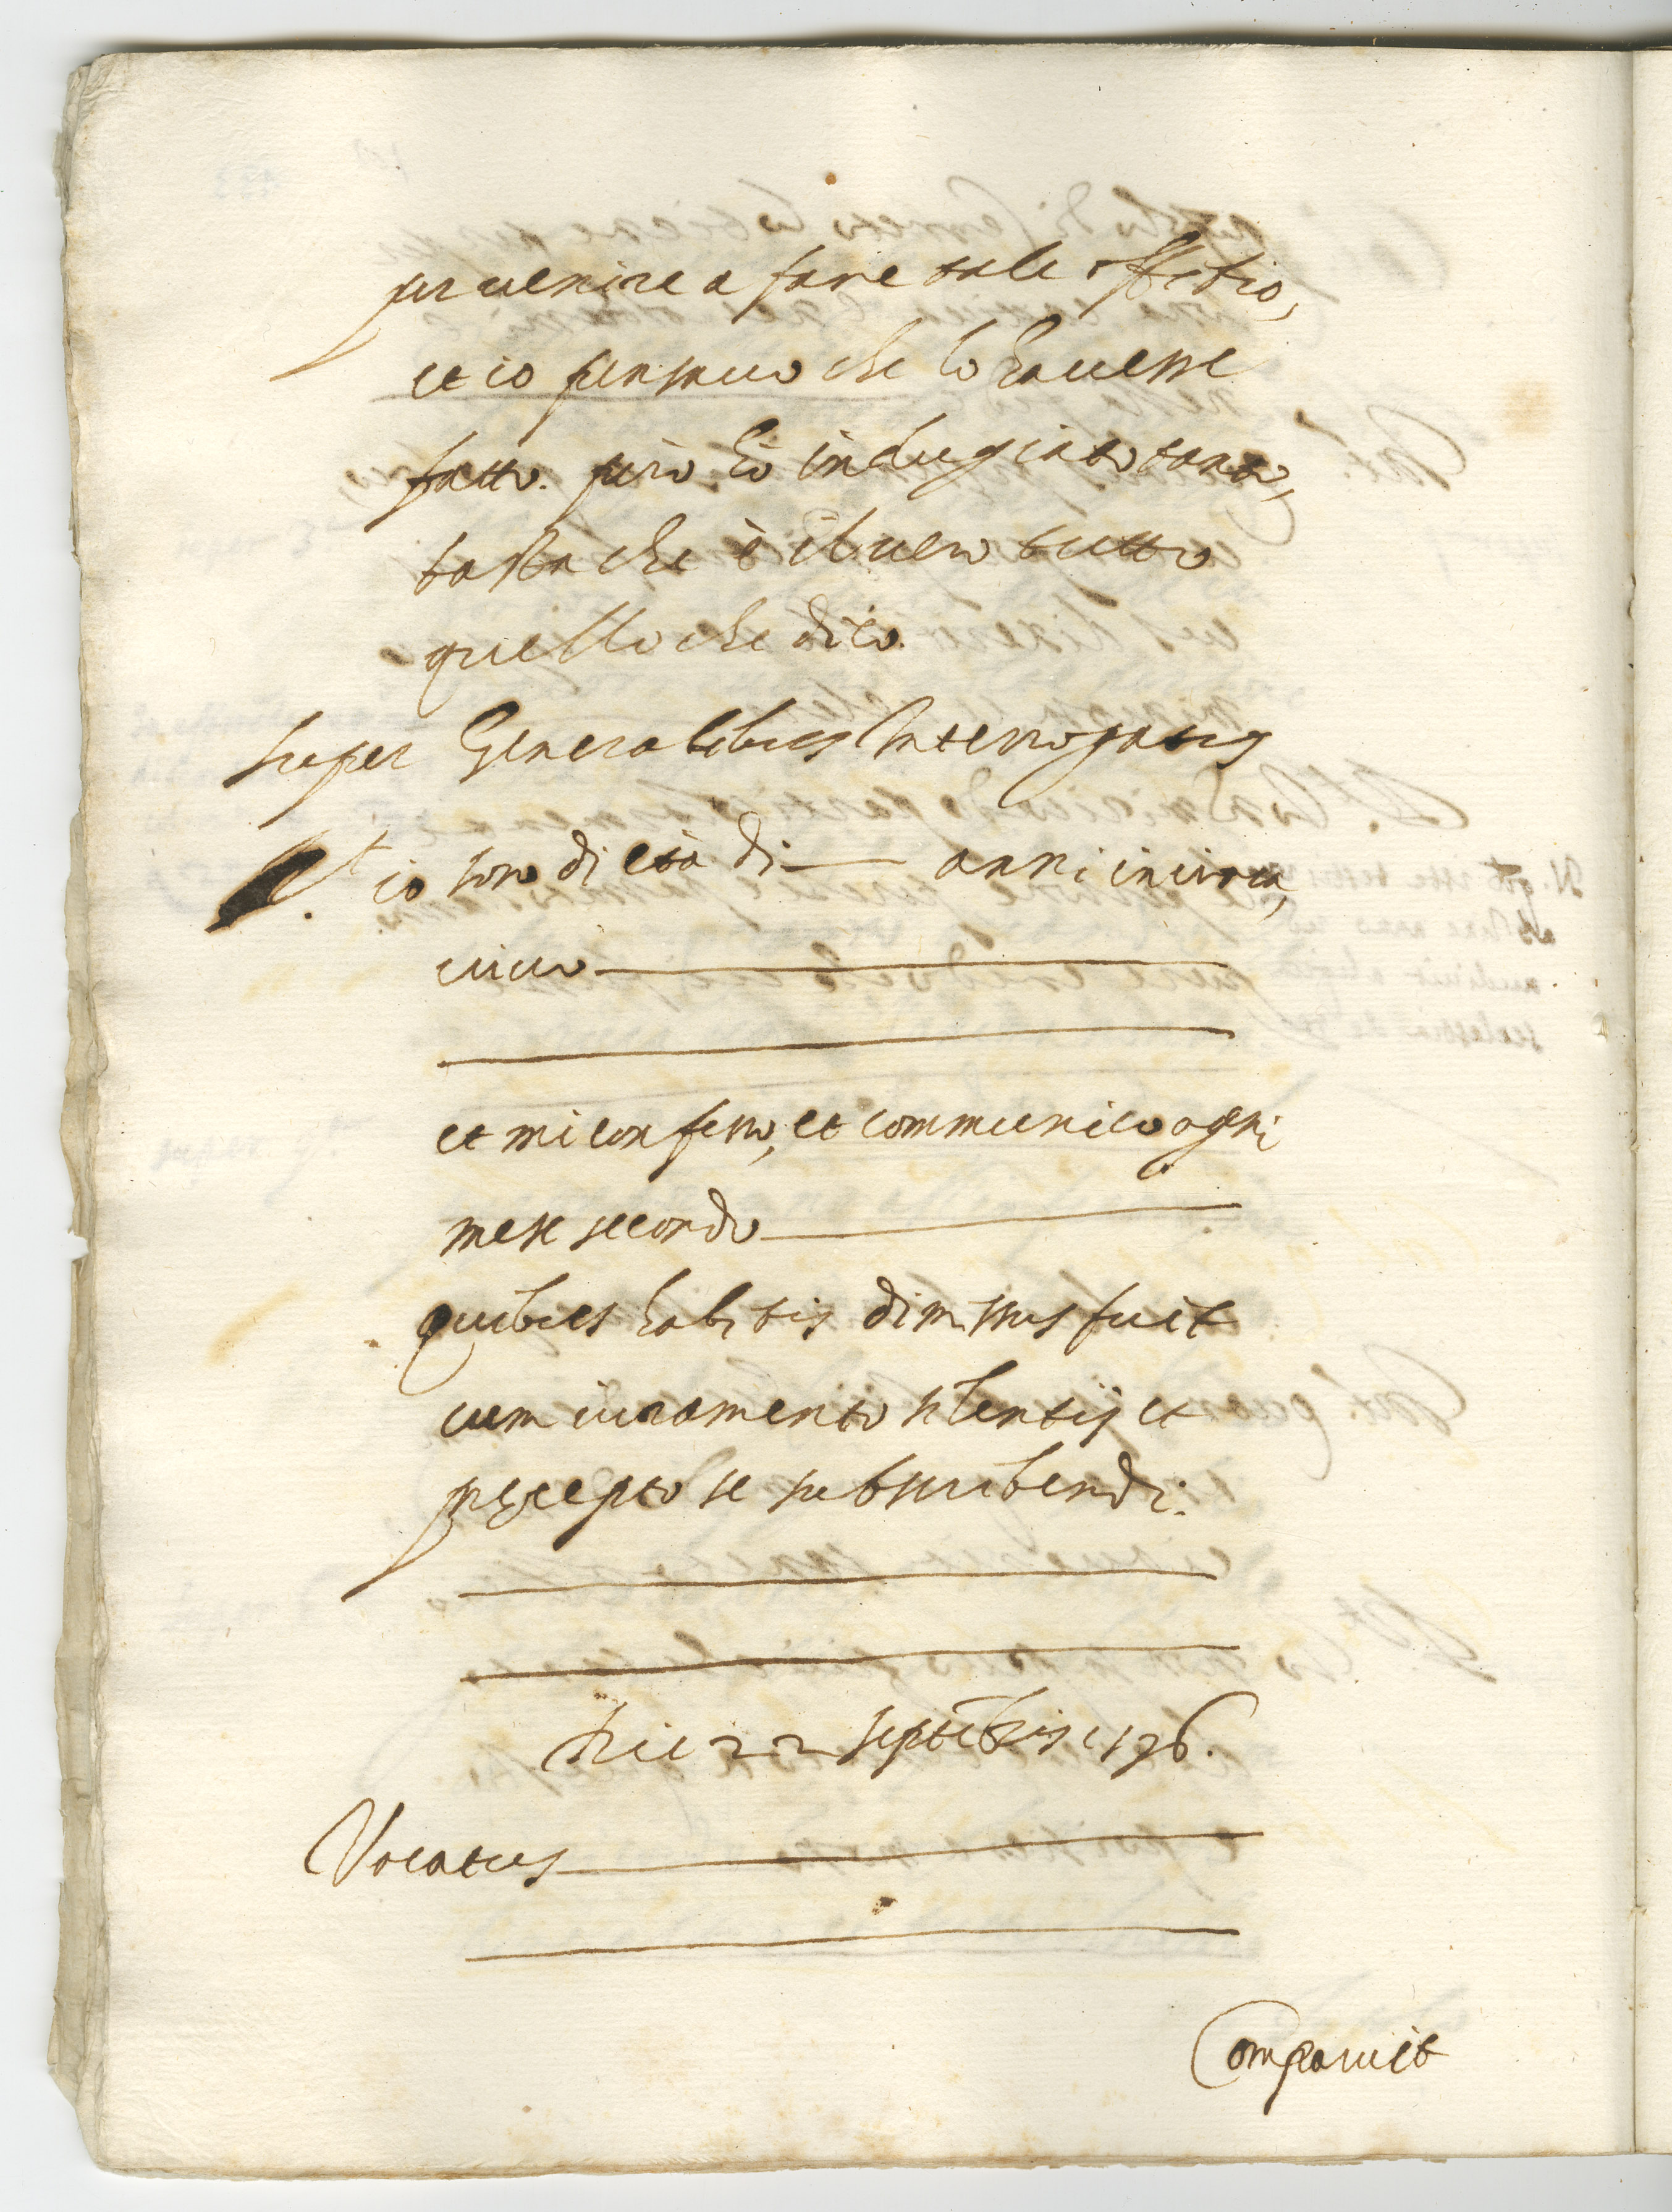 per uenire a fare tale offitio,
et io pensauo che lo hauesse
fatto. però hò indugiato tanto,
basta che è il uero tutto
quello che dico.
super Generalibus Interrogatus
R.t io sono di età di — anni incirca,
uiuo
et mi confesso, et communico ogni
mese secondo
quibus habitis dimissus fuit
cum iuramento silentij et
precepto se subscribendi.
Die 22 septebris 1596.
Vocatus
Comparuit